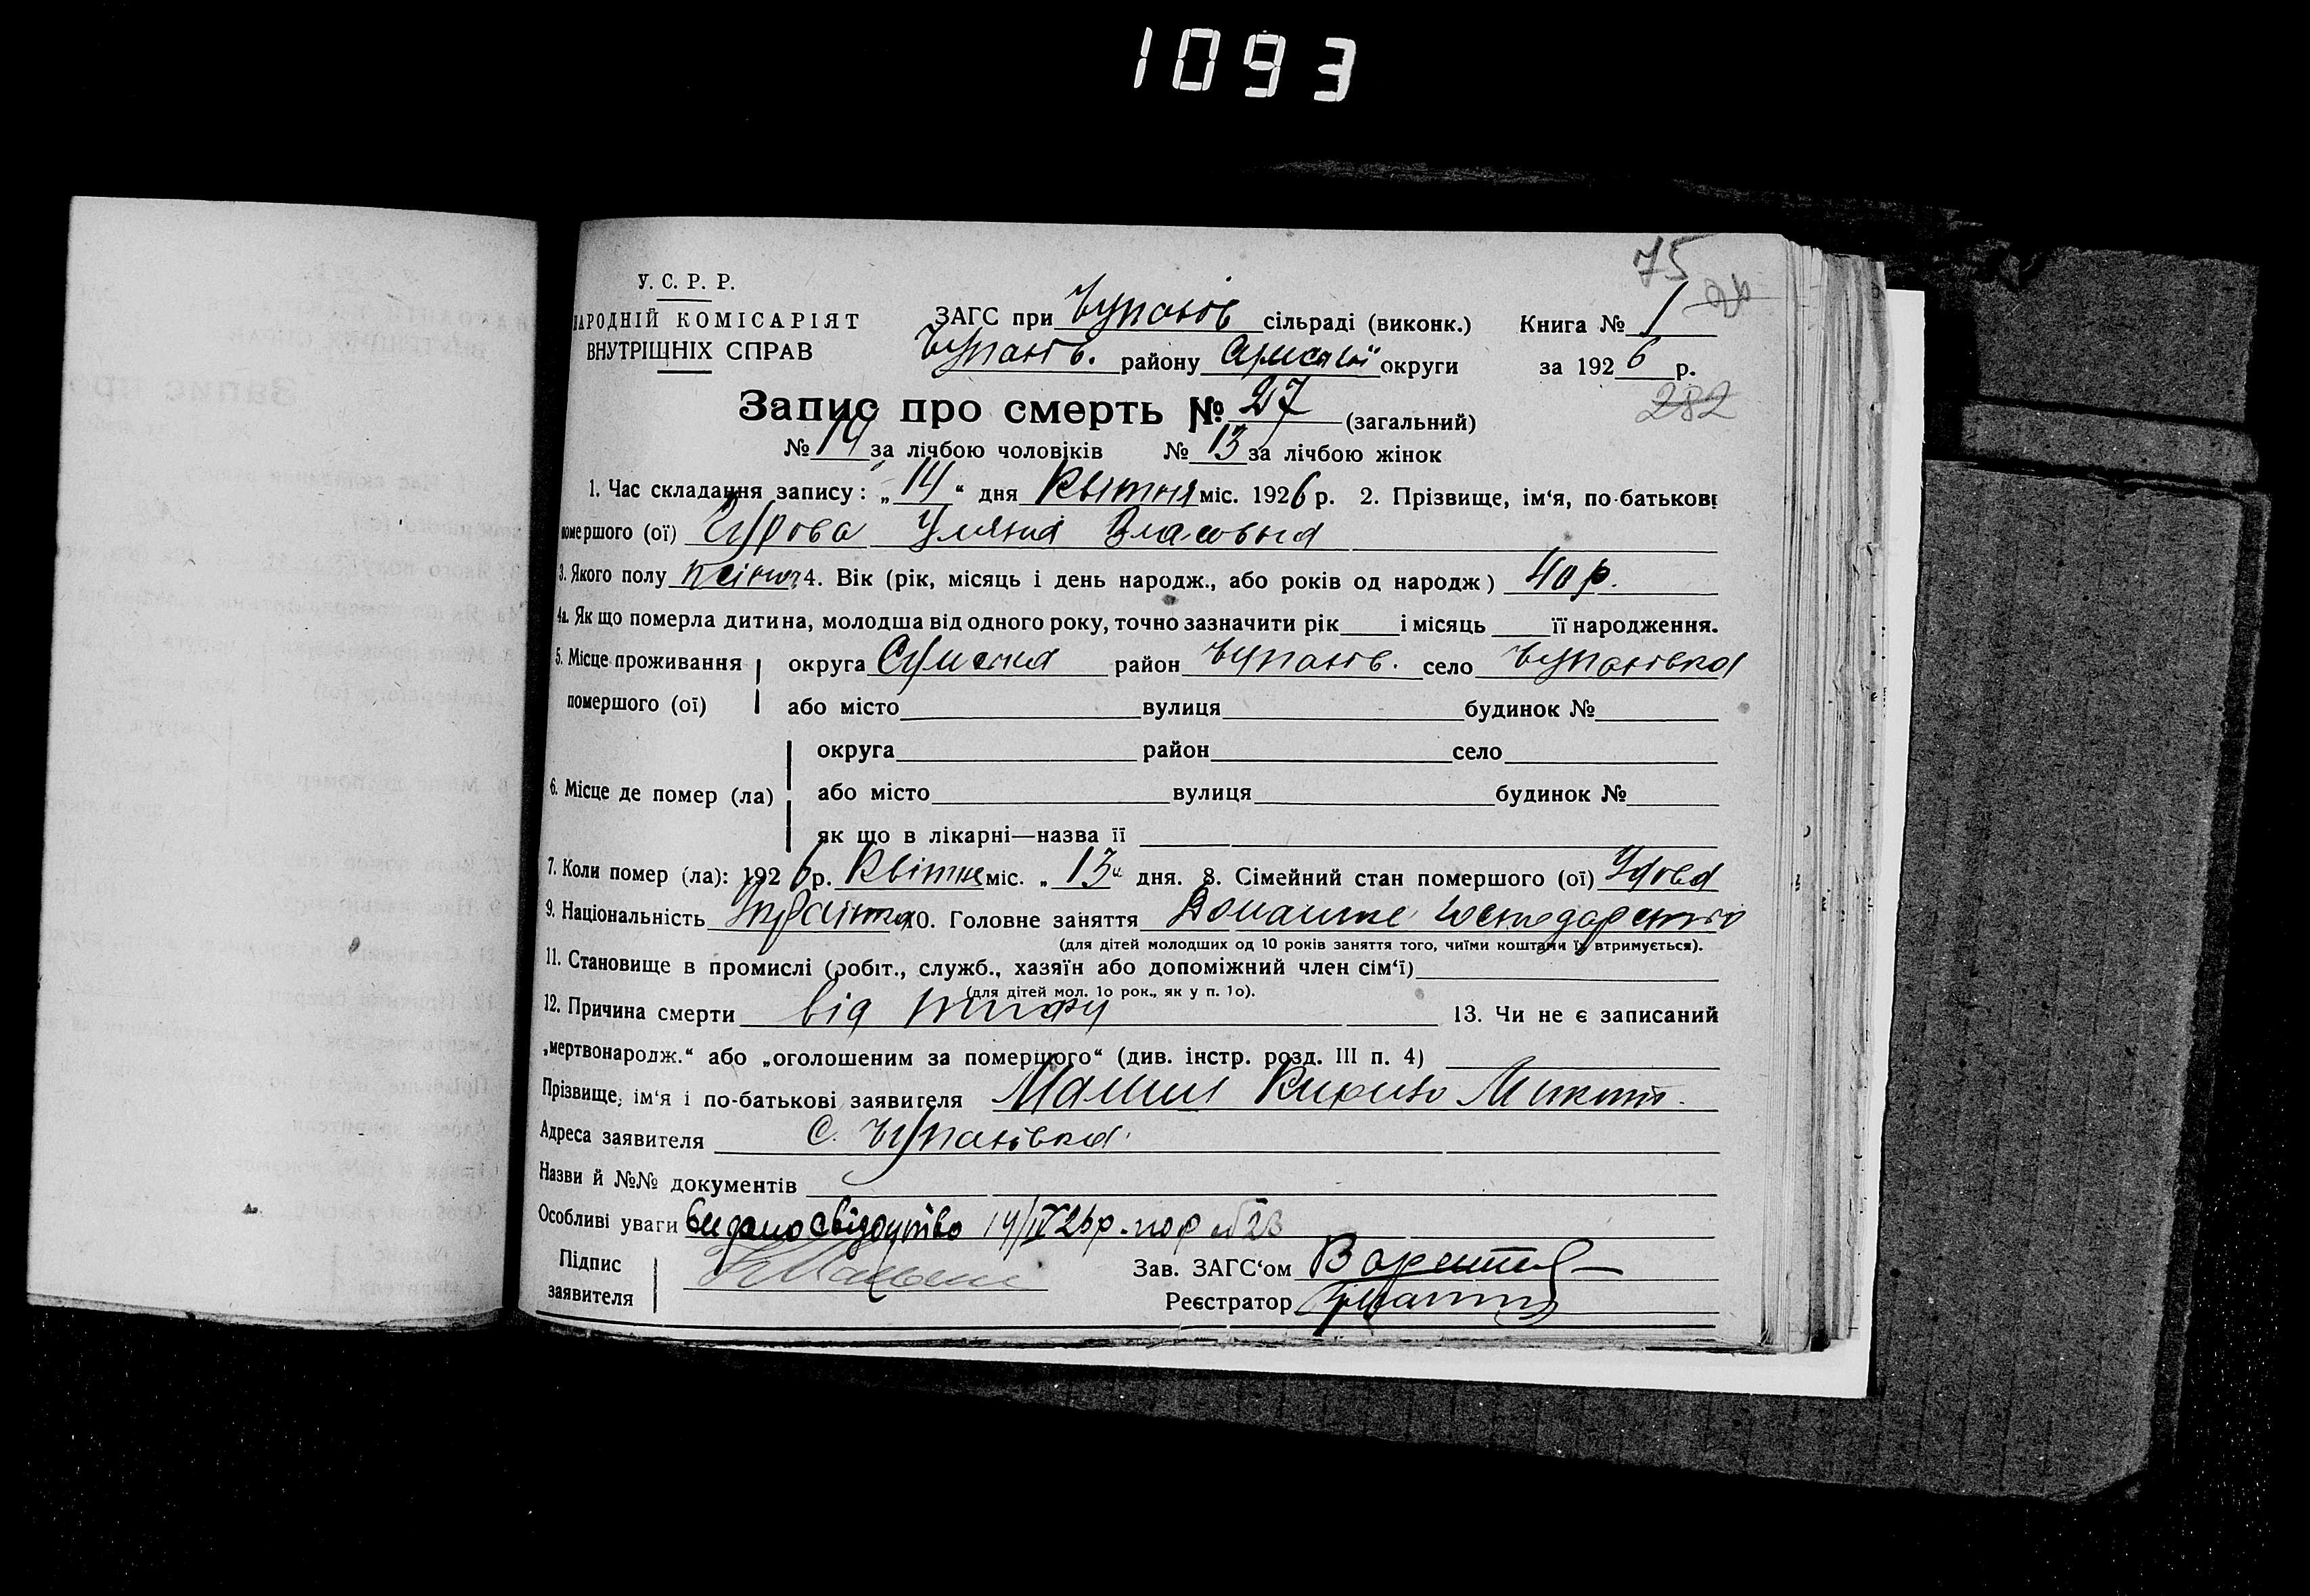 1093
75
У. С. Р. Р.
НАРОДНІЙ КОМІСАРІЯТ
ВНУТРІШНІХ СПРАВ
ЗАГС при Чупахів сільраді (виконк.) Книга № 1
Чупахів. району Сумської округи за 1926 р.
282
Запис про смерть № 27 (загальний)
№ 14 за лічбою чоловіків № 13 за лічбою жінок
1. Час складання запису: „14“ дня Квітня міс. 1926 р. 2. Прізвище, ім‘я, по-батькові
помершого (ої) Сурова Уляна Власовна
3. Якого полу жіноч 4. Вік (рік, місяць і день народж., або років од народж) 40 р.
4а. Як що померла дитина, молодша від одного року, точно зазначити рік і місяць її народження.
5. Місце проживання округа Сумська район Чупахів. село Чупахівка
помершого (ої) або місто вулиця будинок №
округа район село
6. Місце де помер (ла) або місто вулиця будинок №
як що в лікарні—назва її
7. Коли помер (ла): 1926 р. Квітня міс. „13“ дня. 8. Сімейний стан помершого (ої) Удова
9. Національність 10. Головне заняття Домашнє господарство
(для дітей молодших од 10 років заняття того, чиїми коштами їх втримується).
11. Становище в промислі (робіт., служб., хазяїн або допоміжний член сім‘ї)
(для дітей мол. 1о рок., як у п. 1о).
12. Причина смерти від тифу 13. Чи не є записаний
„мертвонародж.“ або „оголошеним за помершого“ (див. інстр. розд. III п. 4)
Прізвище, ім‘я і по-батькові заявителя Кирило Микит.
Адреса заявителя С. Чупахівка
Назви й №№ документів
Особливі уваги Видано свідоцтво 14/IV 26 р. под № 23
Підпис Зав. ЗАГС‘ом
заявителя Реєстратор